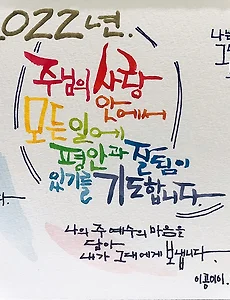 2022년.
주님의 사랑
안에서
모든 일에
평안과 잘됨이
있기를 기도합니다.
나의 주 예수의 마음을
담아
내가 그대에게 보냅니다.